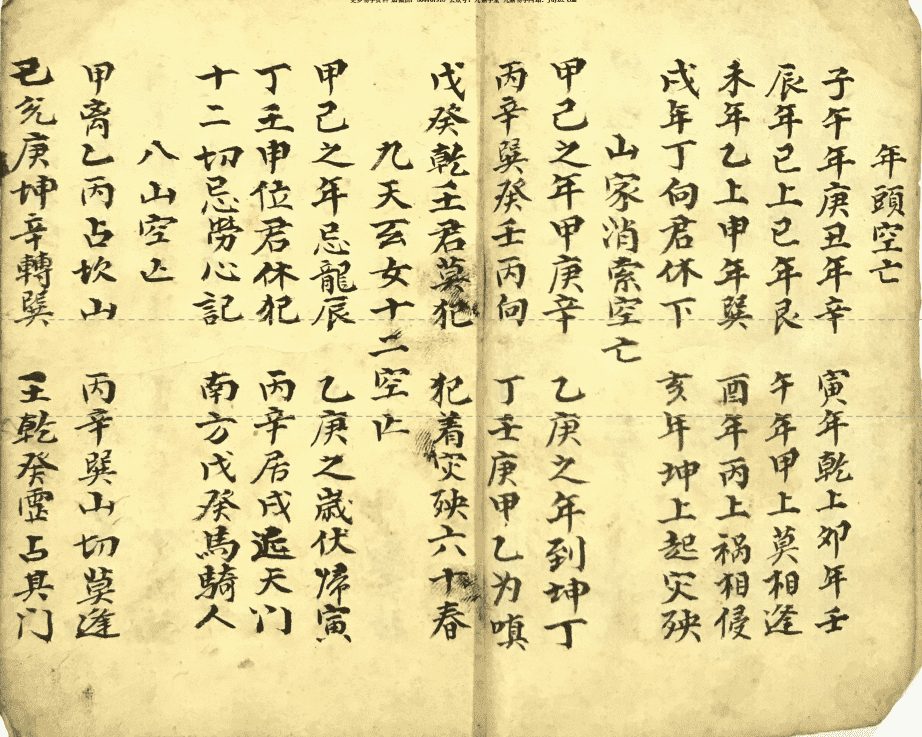 年頭空亡
子午年庚丑年辛 寅年乾上卯年壬
辰年巳上巳年艮 午年甲上莫相逢
未年乙上申年巽 酉年丙上禍相侵
戌年丁向君休下 亥年坤上起灾殃
山家消索空亡
甲己之年甲庚辛 乙庚之年到坤丁
丙辛巽癸壬丙向 丁壬庚甲乙为嗔
戊癸乾壬君莫犯 犯着灾殃六十春
九天玄女十二空亡
甲己之年忌龍辰 乙庚之歲伏歸寅
丁壬申位君休犯 丙辛居戌遁天门
十二切忌勞心記 南方戊癸馬騎人
八山空亡
甲离乙丙占坎山 丙辛巽山切莫逢
己兑庚坤辛轉巽 壬乾癸靈占其门